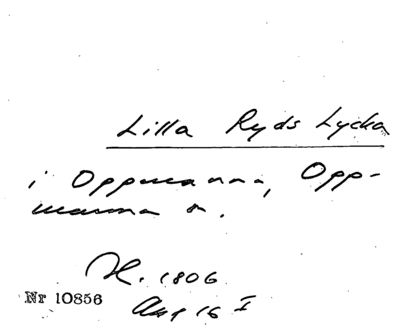 Lilla Ryds Lycka
i Oppmanna, Opp-
manna sn.
H. 1806
Nr 10856
Aug 16 I